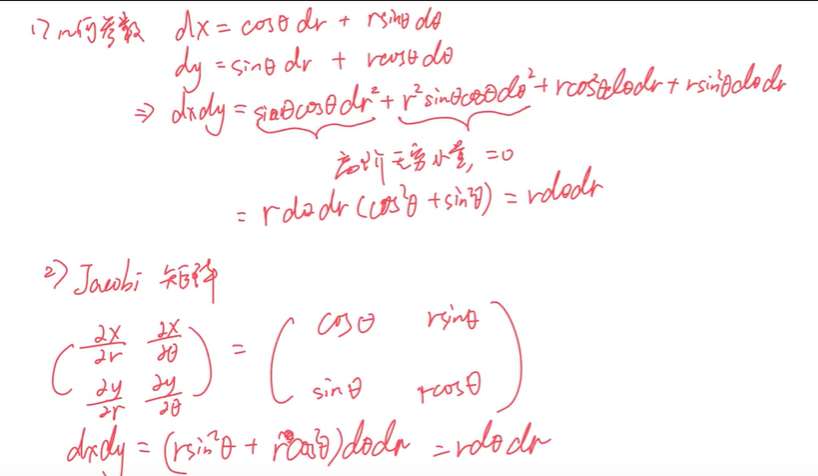 1) 几何参数 dx = cosθ dr + rsinθ dθ
dy = sinθ dr + rcosθ dθ
⇒ dxdy = sinθcosθ dr² + r²sinθcosθ dθ² + rcos²θ dθdr + rsin²θ dθdr
高阶无穷小量, =0
= rdθdr (cos²θ + sin²θ) = rdθdr
2) Jacobi 矩阵
(∂x/∂r ∂x/∂θ) = (cosθ rsinθ)
(∂y/∂r ∂y/∂θ) (sinθ rcosθ)
dxdy = (rsin²θ + rcos²θ)dθdr = rdθdr